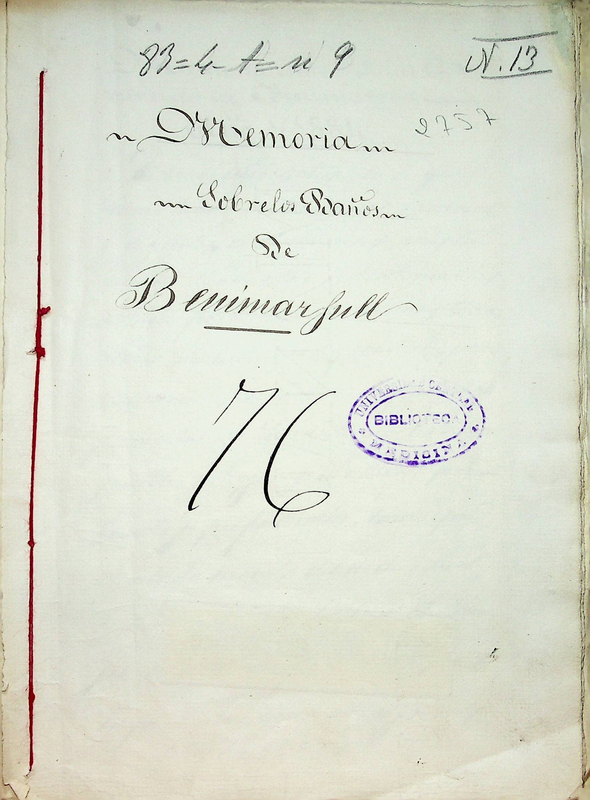 83=4-A=n 9
N. 13
2757
Memoria
Sobre los Baños
De
Benimarfull
76
UNIVERSIDAD CENTRAL
BIBLIOTECA
MEDICINA